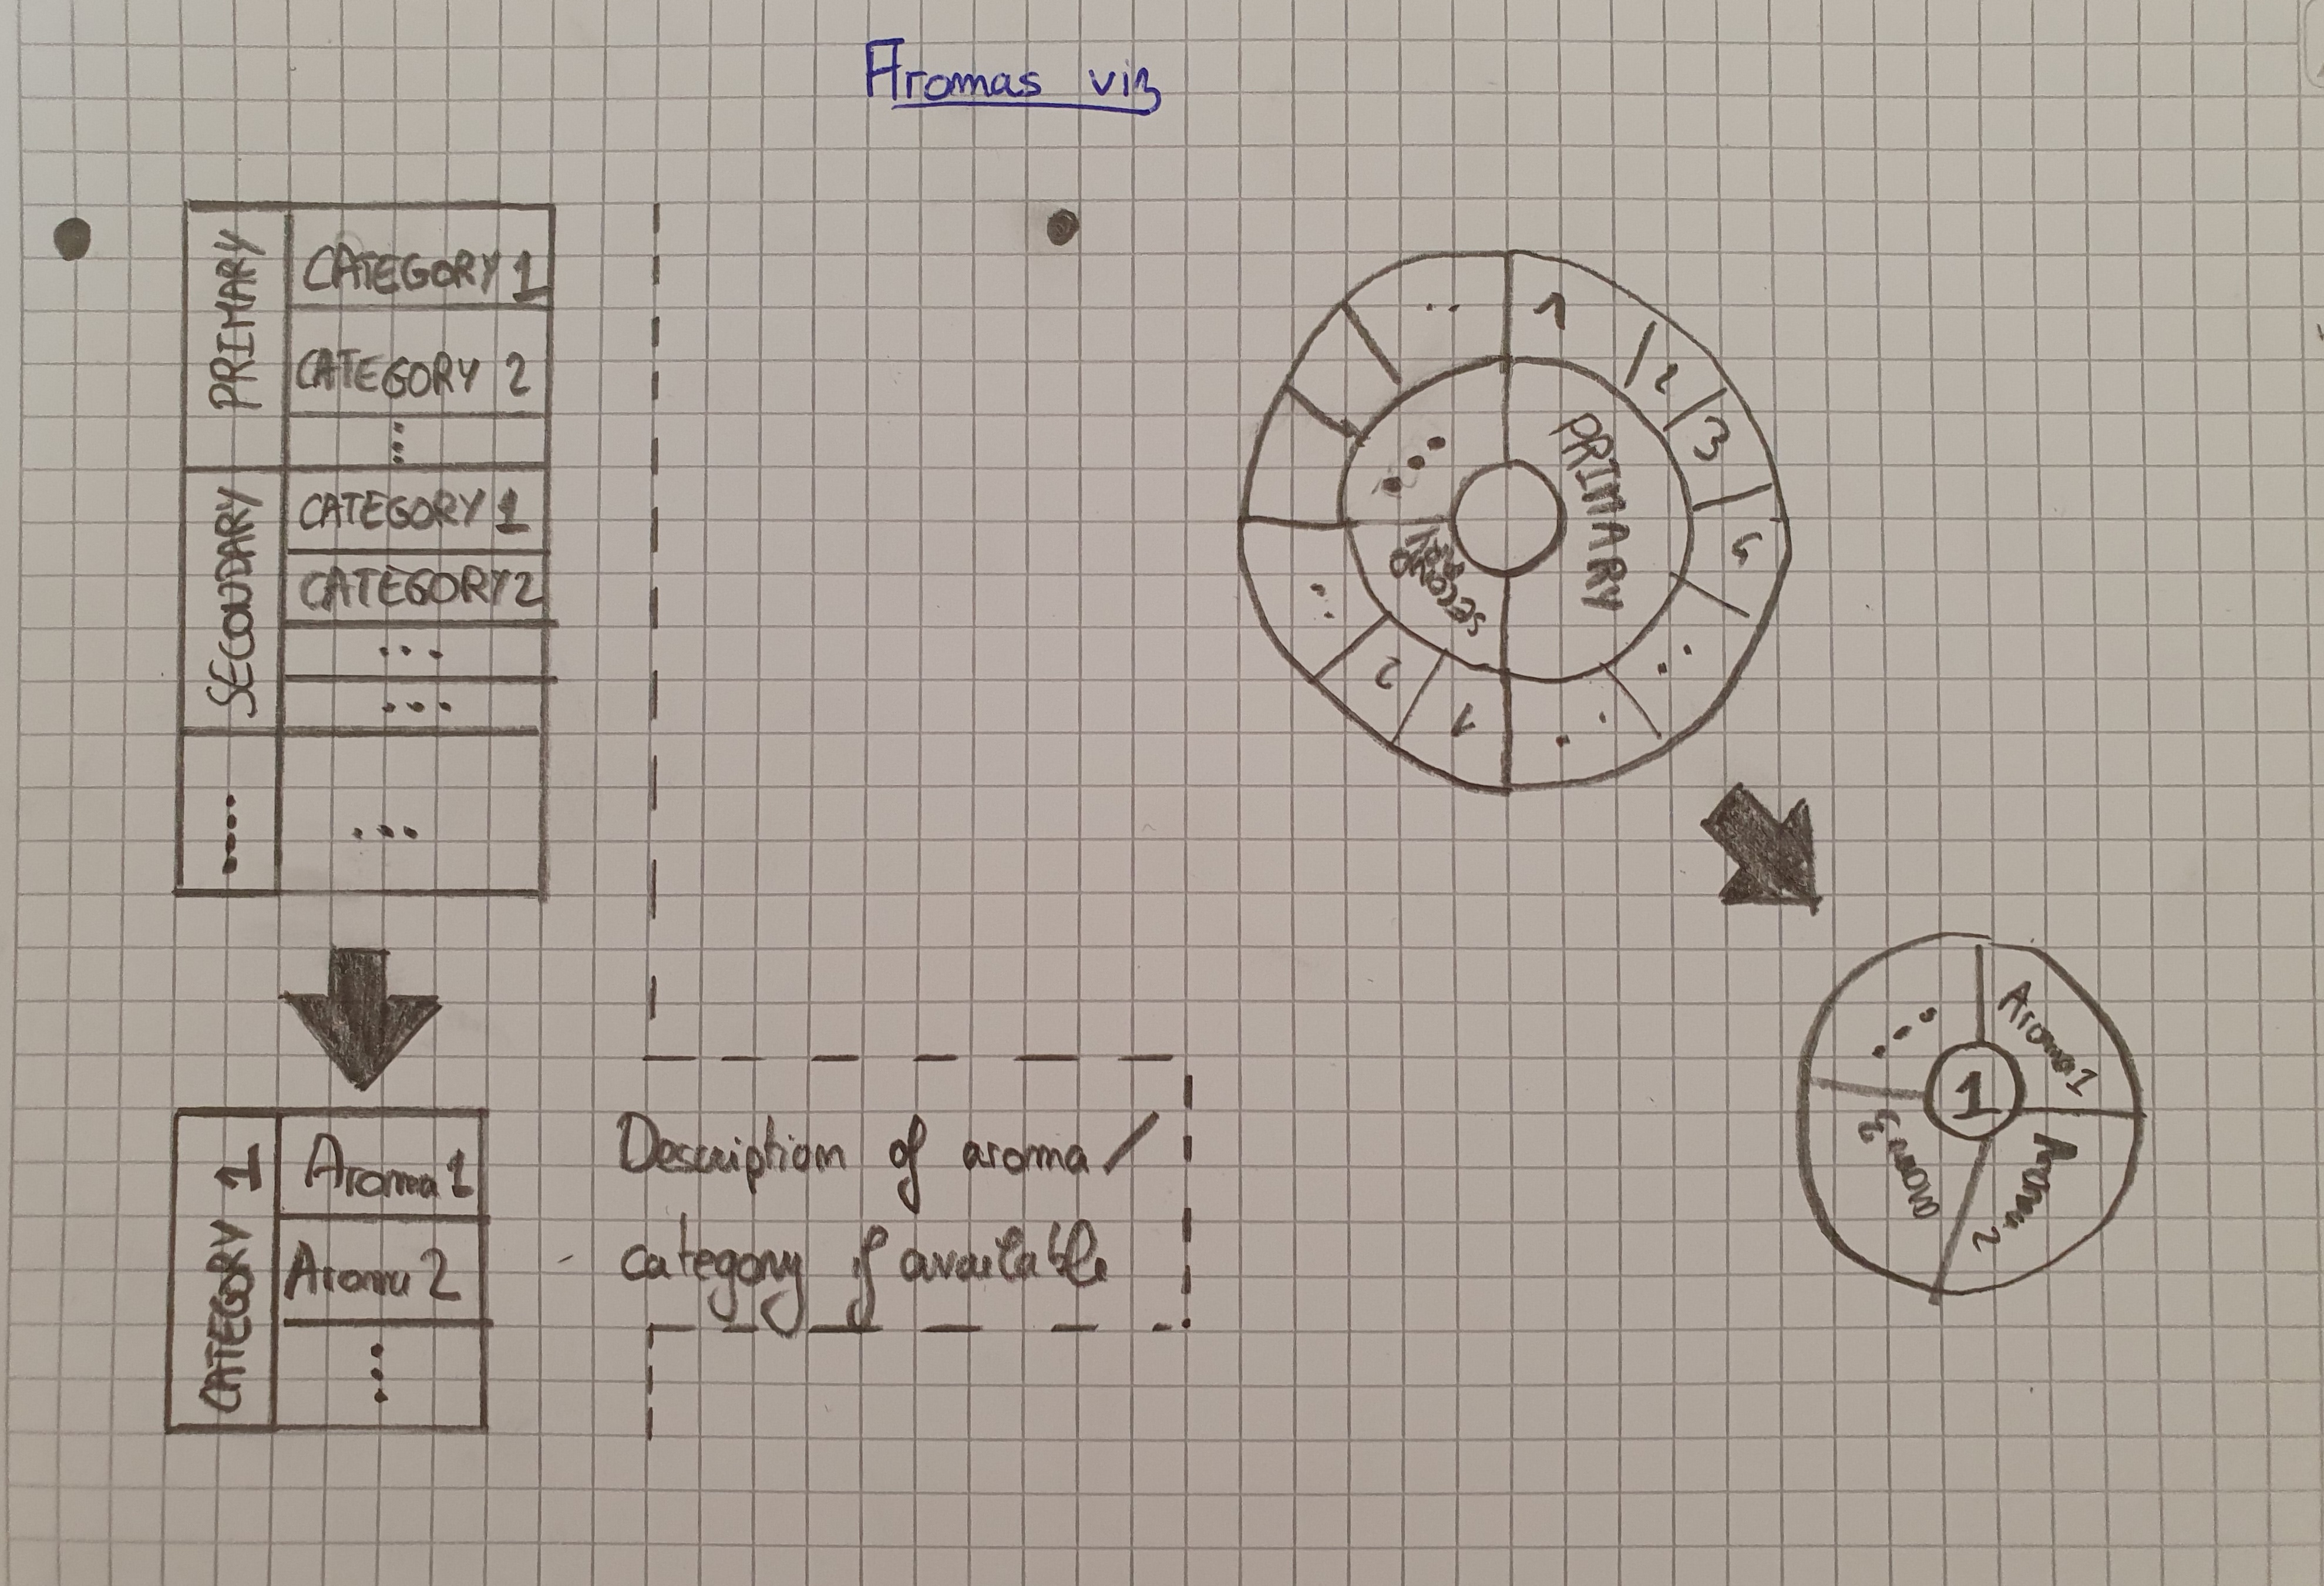 Aromas viz
PRIMARY
CATEGORY 1
CATEGORY 2
...
SECONDARY
CATEGORY 1
CATEGORY 2
...
...
....
...
CATEGORY 1
Aroma 1
Aroma 2
...
Description of aroma /
category if available
PRIMARY
1
2
3
4
...
1
2
...
...
1
Aroma 1
Aroma 2
...